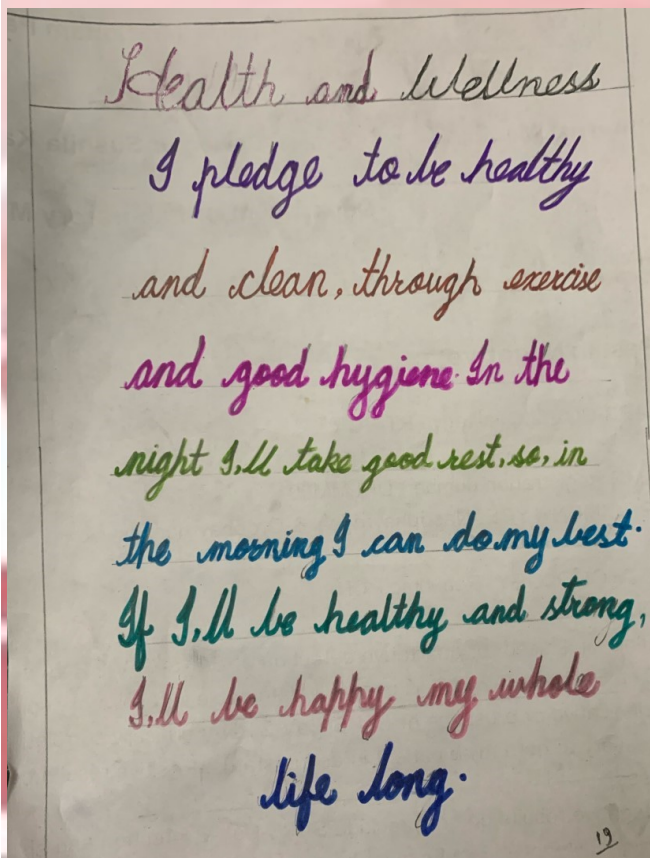 Health and Wellness
I pledge to be healthy
and clean, through exercise
and good hygiene. In the
night I,ll take good rest, so, in
the morning I can do my best.
If I,ll be healthy and strong,
I,ll be happy my whole
life long.
19